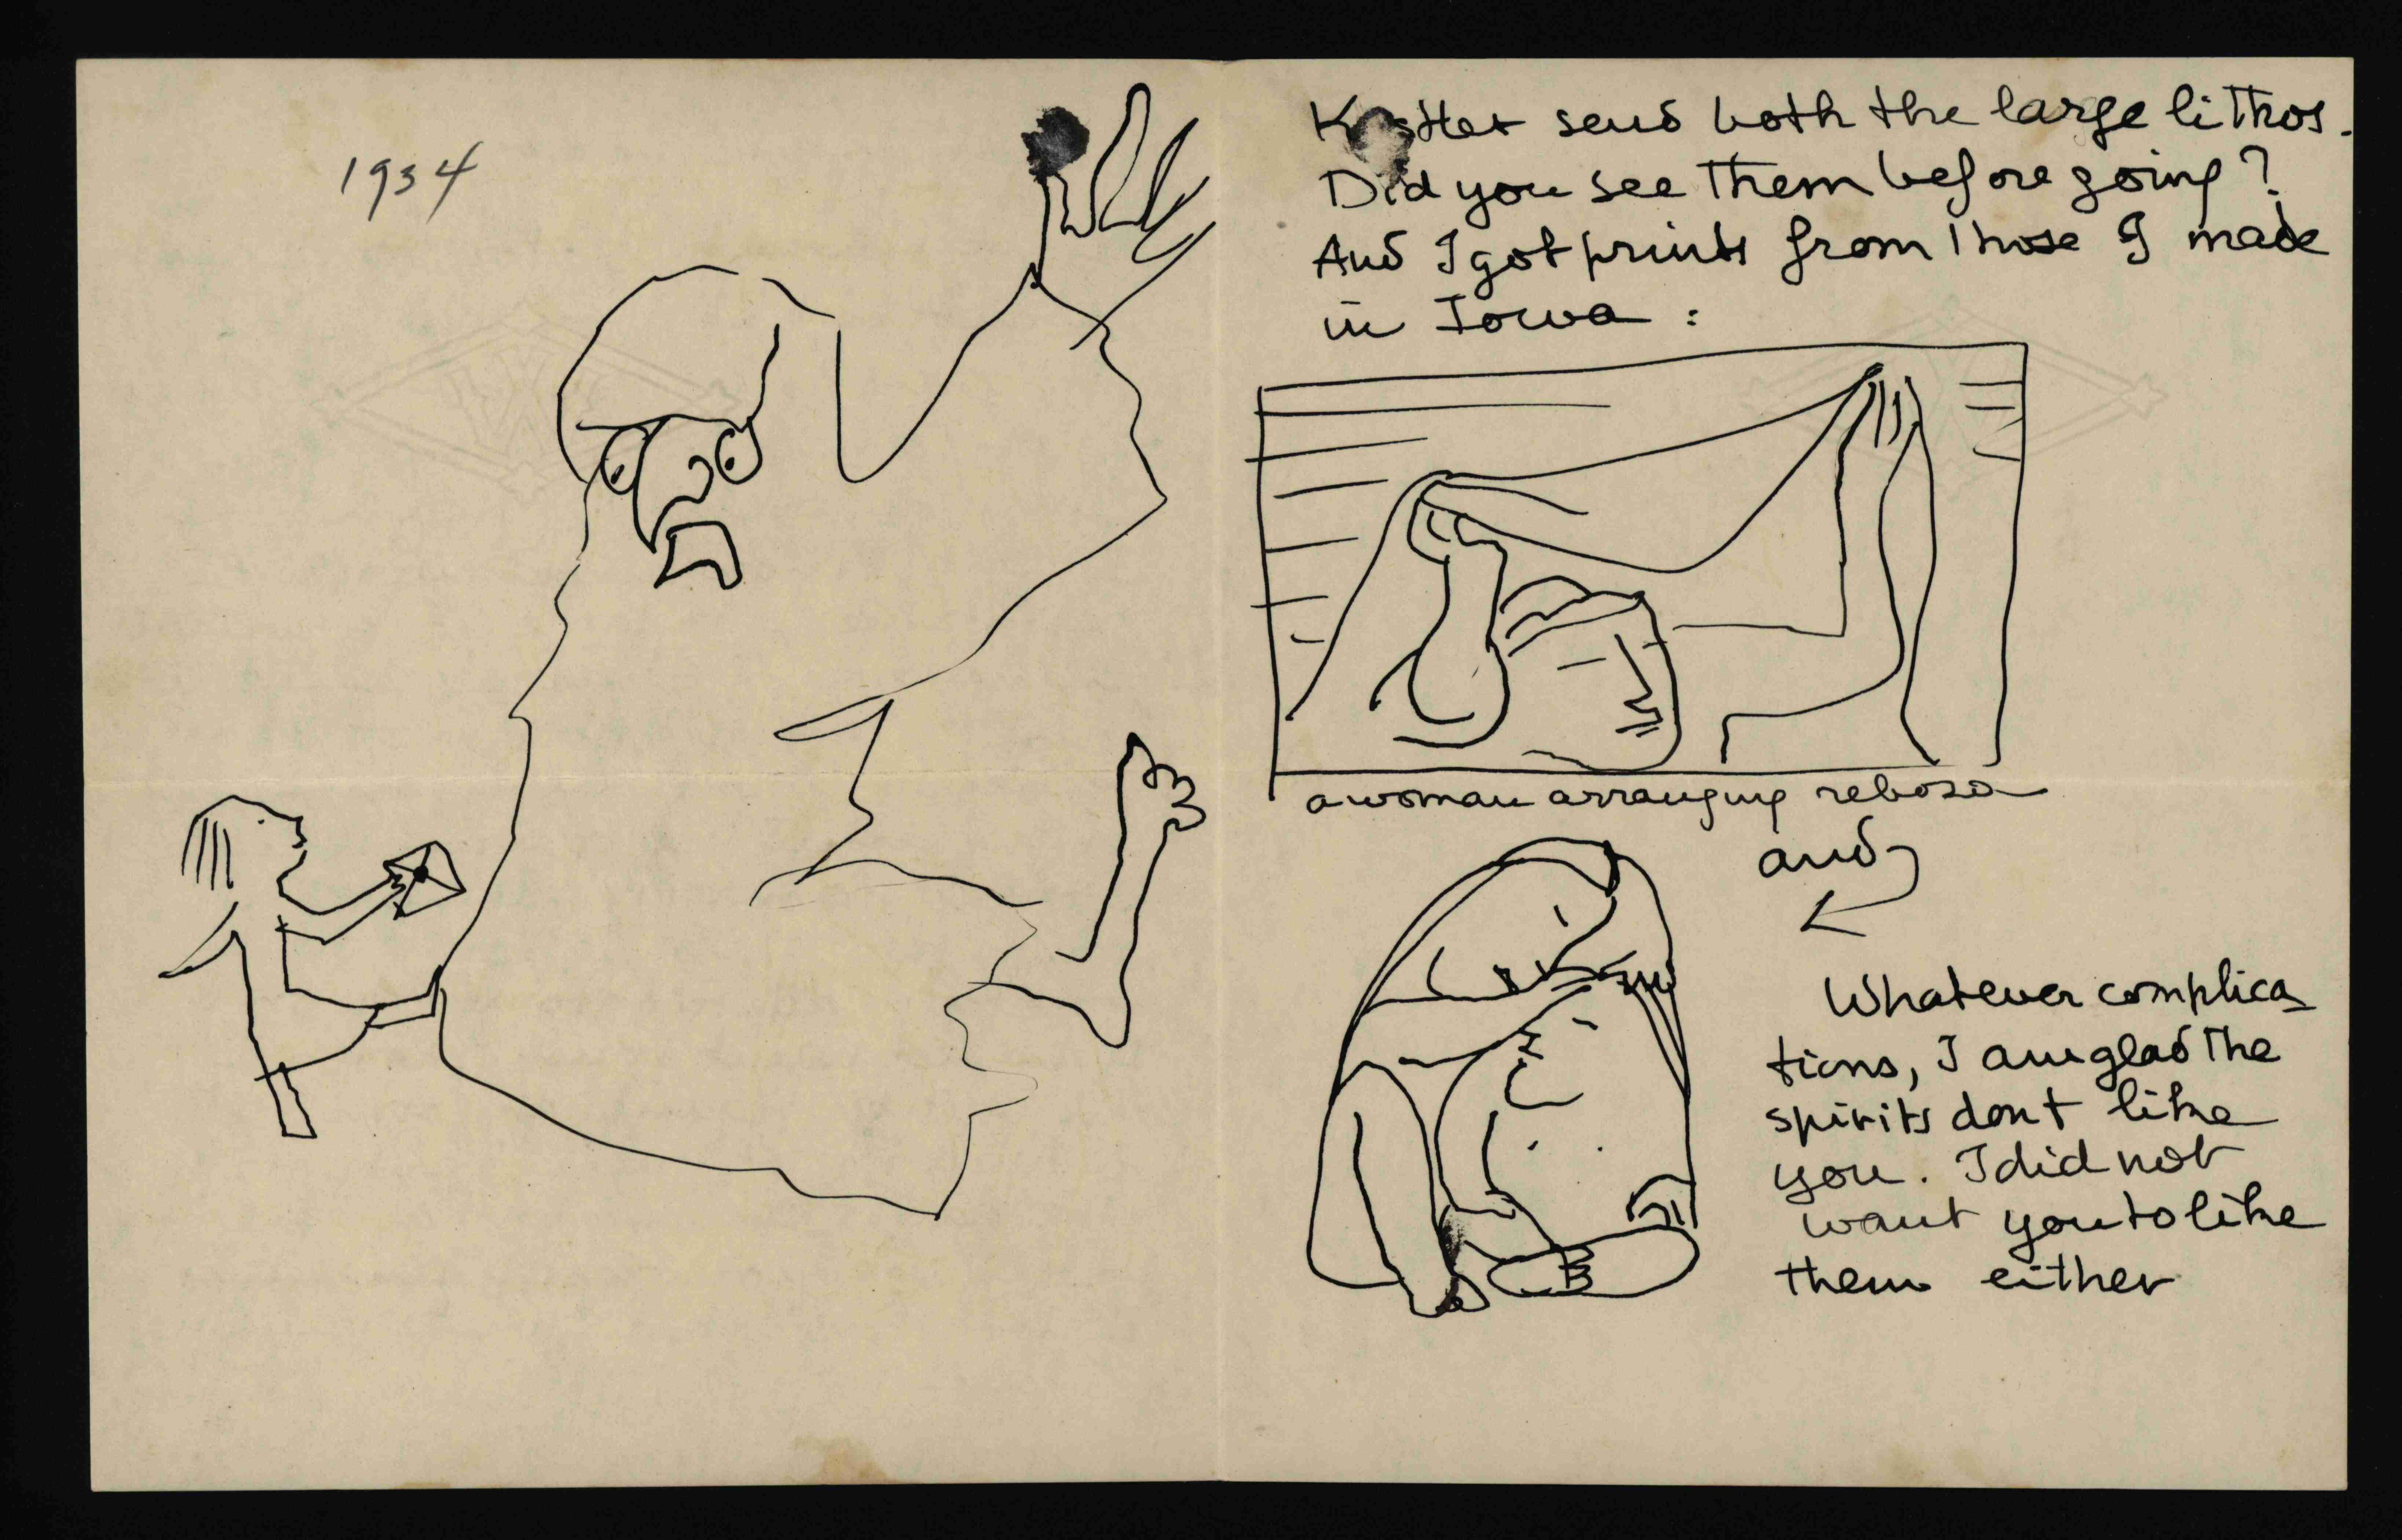 1934
Kistler send both the large lithos.
Did you see them before going?
And I got prints from those I made
in Iowa :
a woman arranging reboso
and
Whatever complica
tions, I am glad the
spirits dont like
you. I did not
want you to like
them either